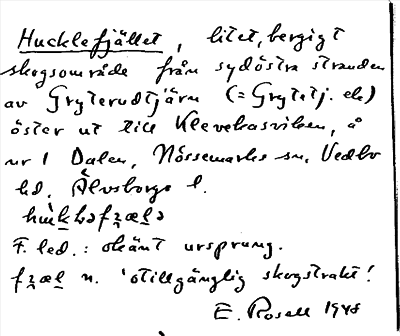 Hucklefjället, litet, bergigt
skogsområde från sydöstra stranden
av Gryterudtjärn (= Grytetj. ek)
öster ut till Klevekasviken, å
nr 1 Dalen, Nössemarks sn, Vedbo
hd, Älvsborgs l.
F. led.: okänt ursprung.
n. 'otillgänglig skogstrakt'
E. Rosell 1948